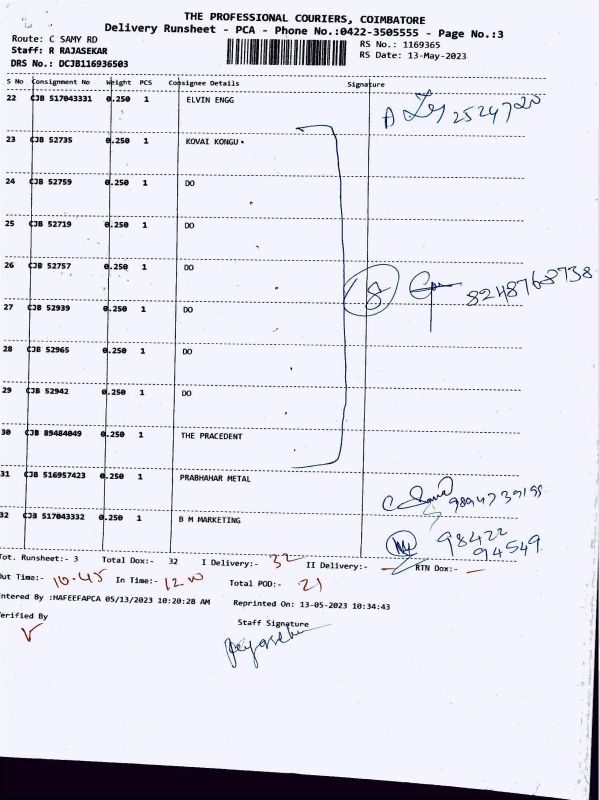 THE PROFESSIONAL COURIERS, COIMBATORE
Delivery Runsheet - PCA - Phone No.:0422-3505555 - Page No.:3
Route: C SAMY RD
RS No.: 1169365
Staff: R RAJASEKAR
RS Date: 13-May-2023
DRS No.: DCJB116936503
S No Consignment No Weight PCS Consignee Details Signature
22 CJB 517043331 0.250 1 ELVIN ENGG
23 CJB 52735 0.250 1 KOVAI KONGU
24 CJB 52759 0.250 1 DO
25 CJB 52719 0.250 1 DO
26 CJB 52757 0.250 1 DO
18 8248768738
27 CJB 52939 0.250 1 DO
28 CJB 52965 0.250 1 DO
29 CJB 52942 0.250 1 DO
30 CJB 89484049 0.250 1 THE PRACEDENT
31 CJB 516957423 0.250 1 PRABHAHAR METAL
32 CJB 517043332 0.250 1 B M MARKETING
98422
94549
Tot. Runsheet:- 3 Total Dox:- 32 I Delivery:- 32 II Delivery:- — RTN Dox:- —
Out Time:- 10.45 In Time:- 12.00 Total POD:- 21
Entered By :HAFEEFAPCA 05/13/2023 10:20:28 AM Reprinted On: 13-05-2023 10:34:43
Verified By
Staff Signature